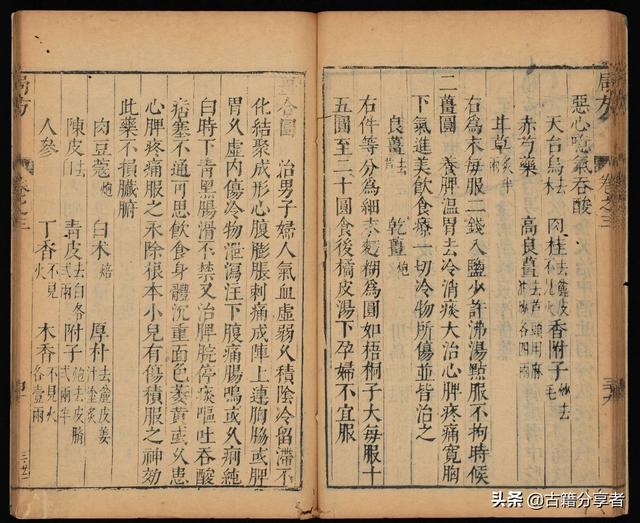 局方 卷之三
惡心噫氣吞酸
天台烏 去木 肉桂 去麄皮不見火 香附子 炒去毛
赤芍藥 高良薑 去蘆頭用麻油炒各四兩
甘草 炙半
右為末每服二錢入鹽少許沸湯點服不拘時候
二薑圓 養脾温胃去冷消痰大治心脾疼痛寬胸
下氣進美飲食療一切冷物所傷並皆治之
良薑 去 乾薑 炮
右件等分為細末麪糊為圓如梧桐子大每服十
五圓至二十圓食後橘皮湯下孕婦不宜服
合圓 治男子婦人氣血虛弱久積陰冷留滯不
化結聚成形心腹膨脹刺痛成陣上連胸脇或脾
胃久虛内傷冷物泄瀉注下腹痛腸鳴或久痢純
白時下青黑腸滑不禁又治脾脘停痰嘔吐吞酸
痞塞不通可思飲食身體沉重面色萎黄或久患
心脾疼痛服之永除根本小兒有傷積服之神効
此藥不損臟腑
肉豆蔻 炮 白术 焙 厚朴 去麄皮姜汁炙
陳皮 去白 青皮 去白各弍兩 附子 炮去皮臍弍兩半
人參 丁香 不見火 木香 不見火各壹兩
局方 卷之三
头条 @古籍分享者